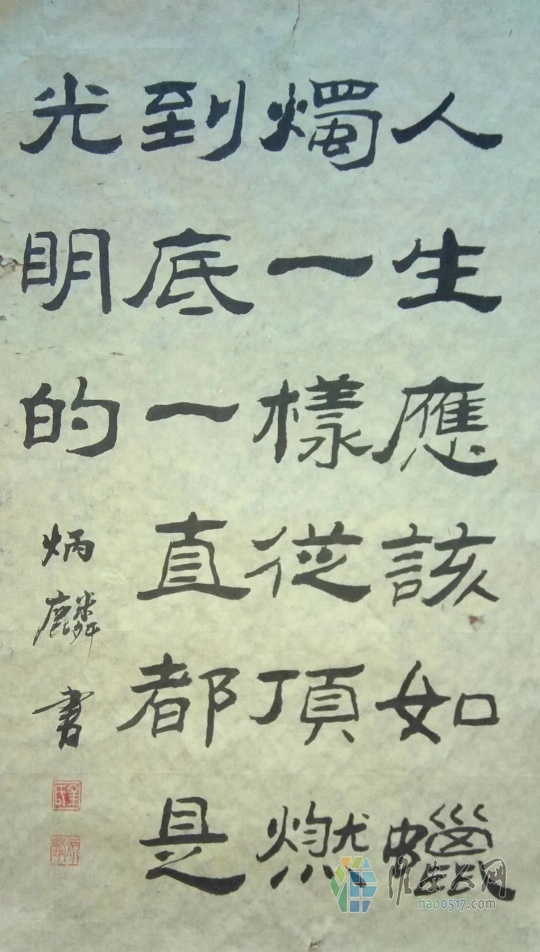 人生應該如蠟
燭一樣從頂燃
到底一直都是
光明的
炳麟書
淮安人网
hao0517.com